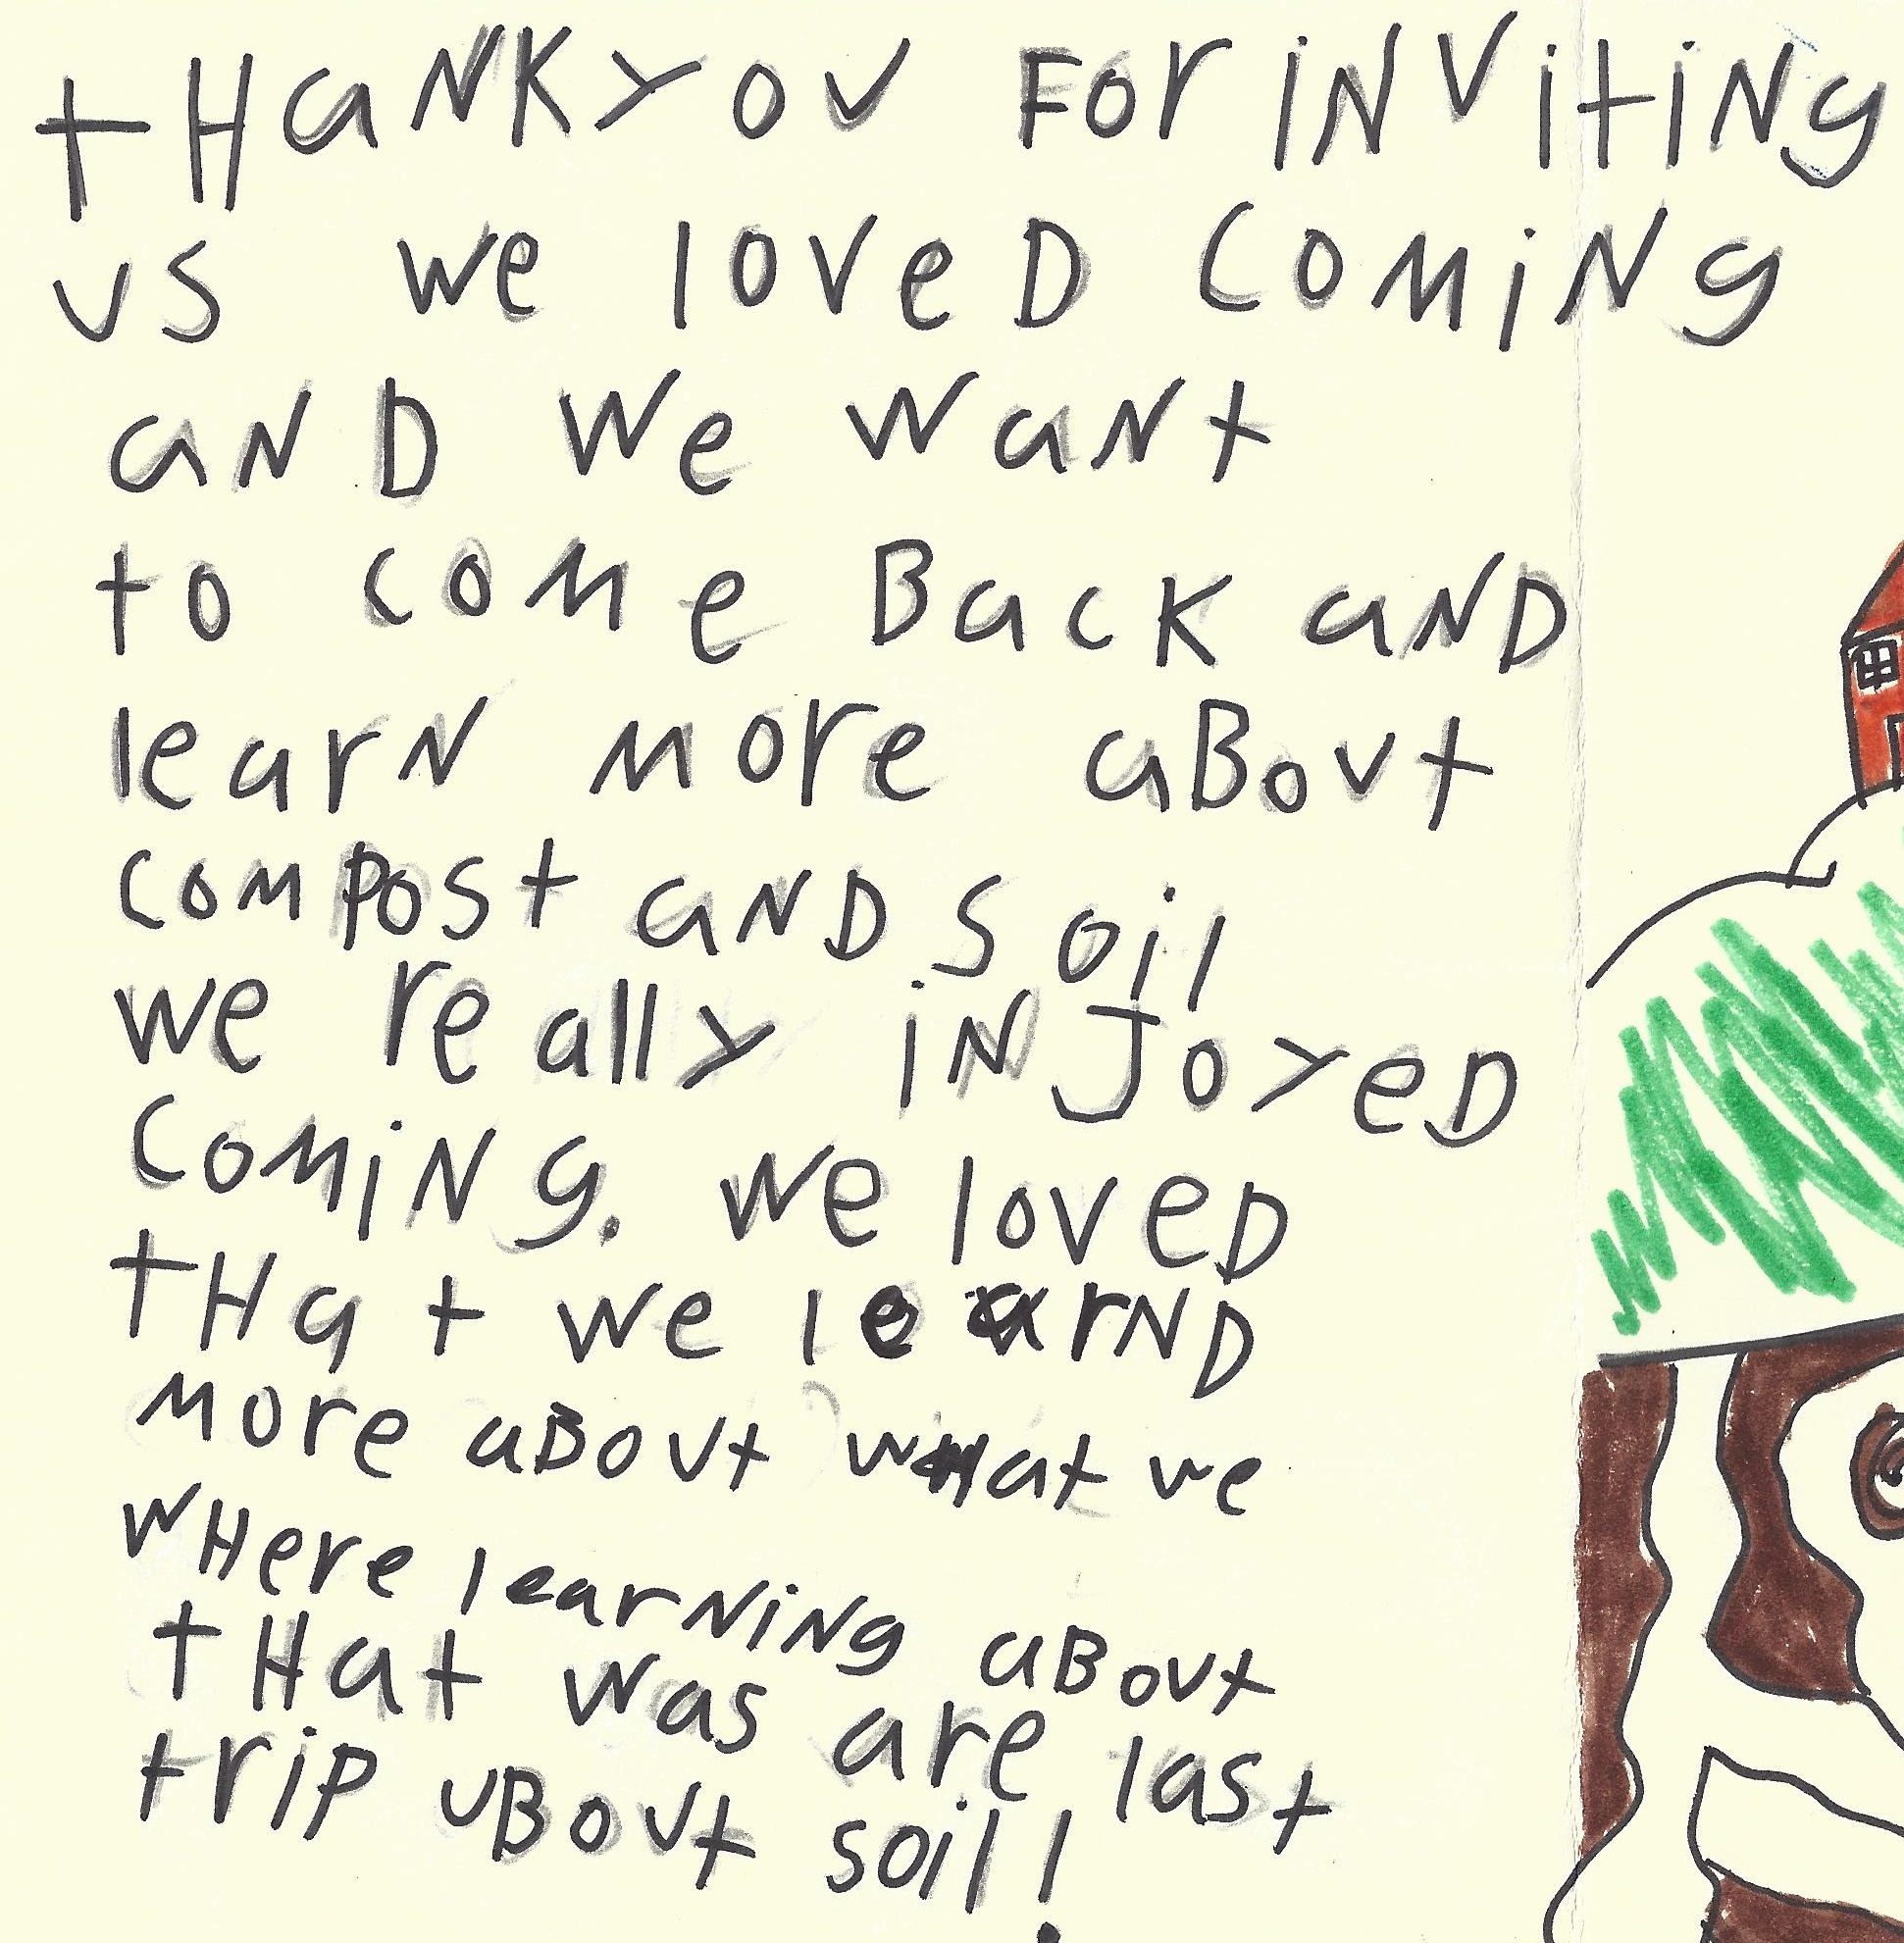 tHaNKyou For iNViTiNg
us we loveD CoMiNg
aND We waNt
to coMe Back aND
learN More aBout
coMPost aND Soil
we really iNJoyeD
CoMiNg. we loveD
tHat we learND
More aBout wHat we
wHere learNiNg aBout
tHat was are last
triP uBout soil!